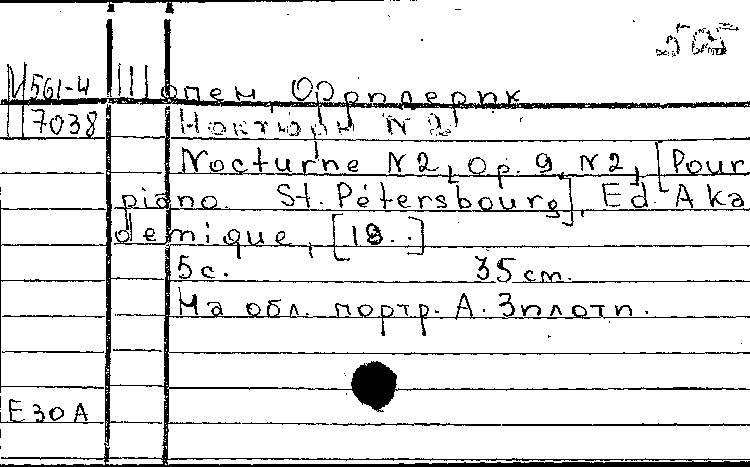 565
М561-4 Шопен, Фридерик
7038 Ноктюрн N 2
Nocturne N2, Op. 9, N2, [Pour
piano. St. Pétersbourg], Ed. Aka
demique, [19..]
5 с. 35 cm.
На обл. портр. А. Зилоти.
E30A